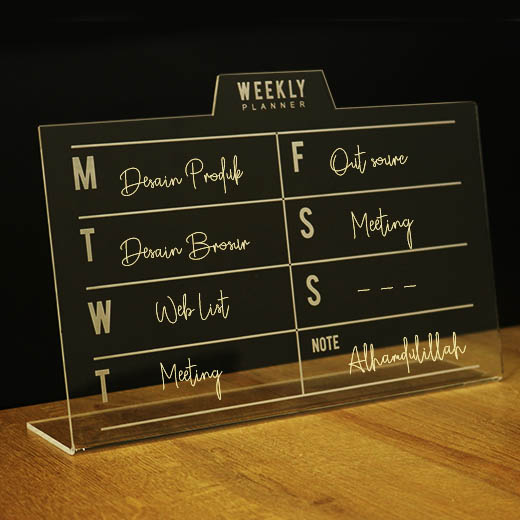 WEEKLY
PLANNER
M Desain Produk
T Desain Brosur
W Web List
T Meeting
F Out soure
S Meeting
S - - -
NOTE Alhamdulillah